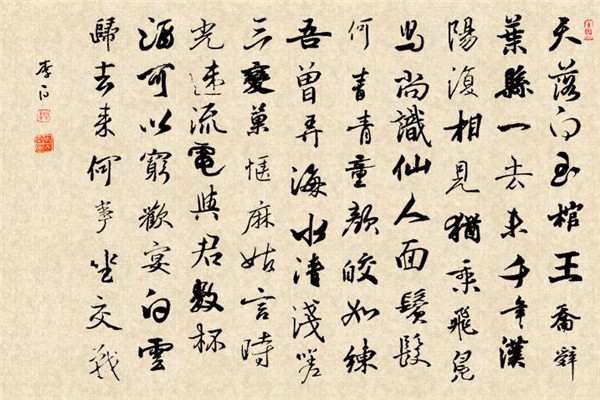 天落白玉棺王喬辭
葉縣一去未千年漢
陽復相見猶乘飛鳧
舄尚識仙人面鬢髮
何青青童顏皎如練
吾曾弄海水清淺嗟
三變菓愜麻姑言時
光速流電與君數杯
酒可以窮歡宴白雲
歸去来何事坐交戰
李白